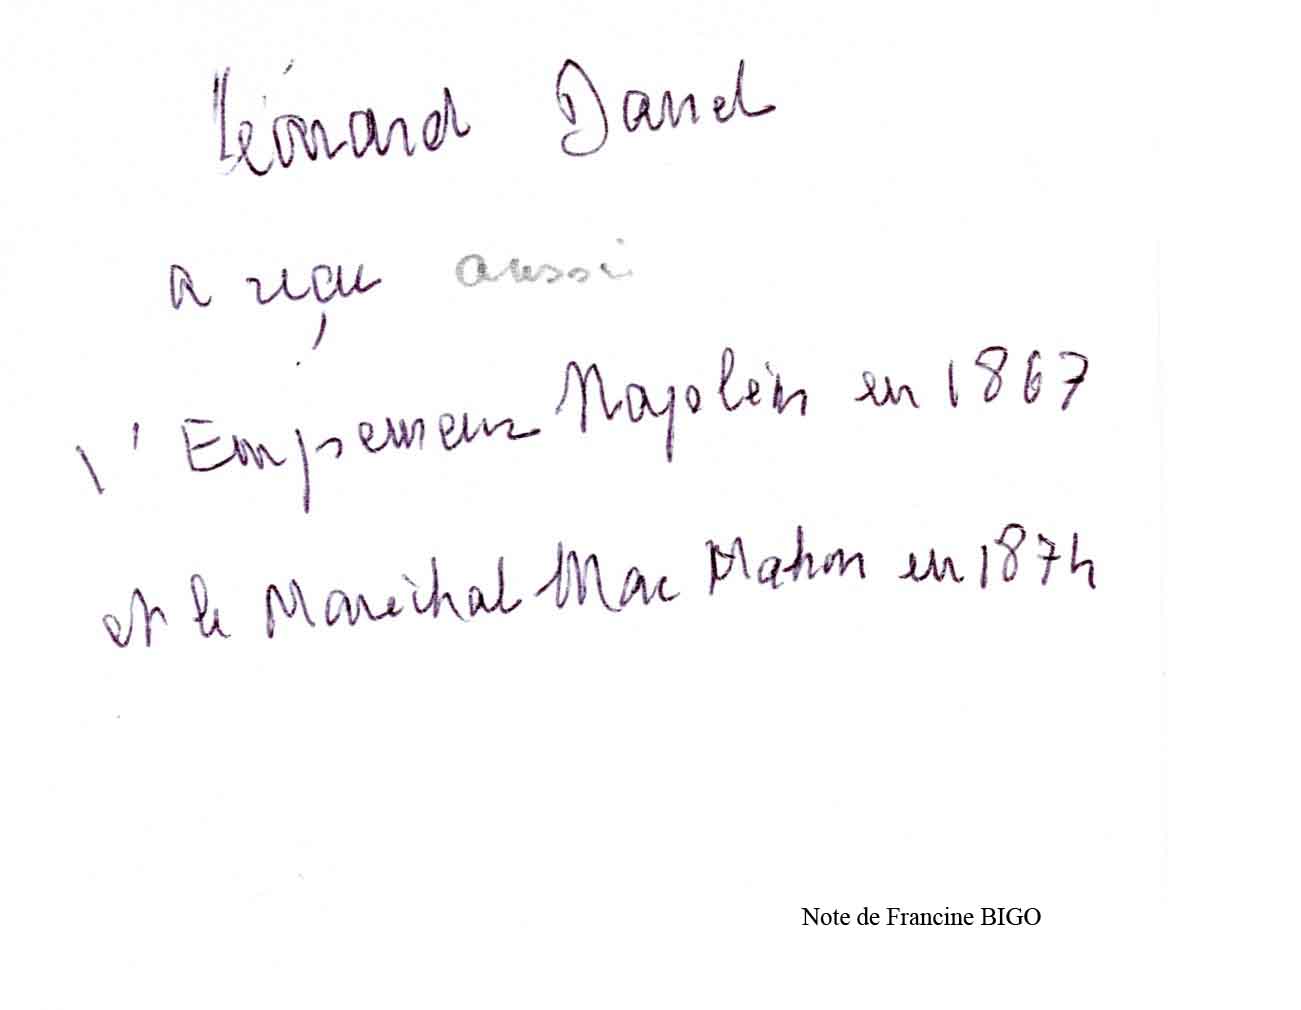 Léonard Danel
a reçu aussi
l'Empereur Napoléon en 1867
et le Maréchal Mac Mahon en 1874
Note de Francine BIGO